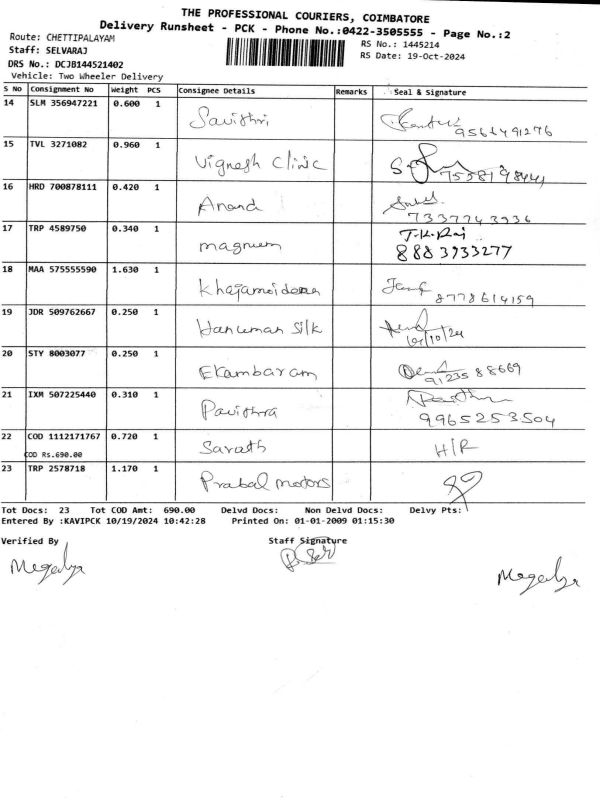 THE PROFESSIONAL COURIERS, COIMBATORE
Delivery Runsheet - PCK - Phone No.:0422-3505555 - Page No.:2
Route: CHETTIPALAYAM
RS No.: 1445214
Staff: SELVARAJ
RS Date: 19-Oct-2024
DRS No.: DCJB144521402
Vehicle: Two Wheeler Delivery
S No Consignment No Weight PCS Consignee Details Remarks Seal & Signature
14 SLM 356947221 0.600 1 Savithri
15 TVL 3271082 0.960 1 Vignesh Clinic
16 HRD 700878111 0.420 1 Anand
7337743936
17 TRP 4589750 0.340 1 magnum T.K.Raj
8883933277
18 MAA 575555590 1.630 1
8778614159
19 JDR 509762667 0.250 1 Hanuman Silk
19/10/24
20 STY 8003077 0.250 1 Ekambaram
9123588669
21 IXM 507225440 0.310 1 Pavithra
9965253504
22 COD 1112171767 0.720 1 Sarath H/R
COD Rs.690.00
23 TRP 2578718 1.170 1 Prabal motors
Tot Docs: 23 Tot COD Amt: 690.00 Delvd Docs: Non Delvd Docs: Delvy Pts:
Entered By :KAVIPCK 10/19/2024 10:42:28 Printed On: 01-01-2009 01:15:30
Verified By Staff Signature